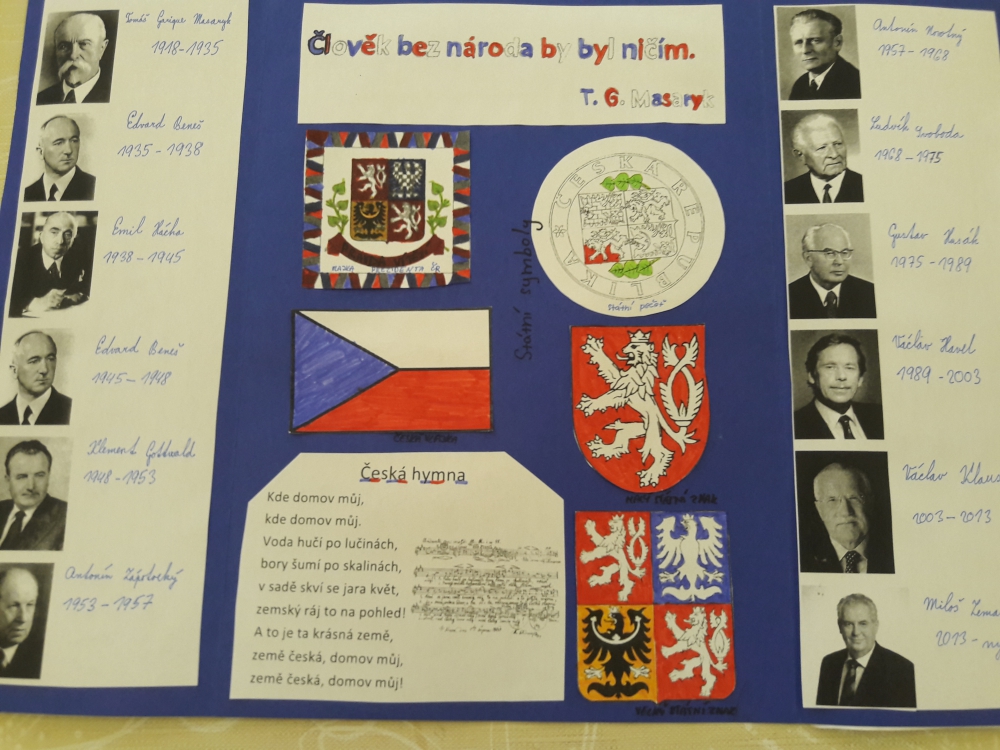 Tomáš Garigue Masaryk
1918-1935
Edvard Beneš
1935-1938
Emil Hácha
1938-1945
Edvard Beneš
1945-1948
Klement Gottwald
1948-1953
Antonín Zápotocký
1953-1957
Člověk bez národa by byl ničím.
T. G. Masaryk
VLAJKA PREZIDENTA ČR
Státní symboly
ČESKÁ REPUBLIKA
státní pečeť
MALÝ STÁTNÍ ZNAK
VELKÝ STÁTNÍ ZNAK
Česká hymna
Kde domov můj,
kde domov můj.
Voda hučí po lučinách,
bory šumí po skalinách,
v sadě skví se jara květ,
zemský ráj to na pohled!
A to je ta krásná země,
země česká, domov můj,
země česká, domov můj!
Antonín Novotný
1957-1968
Ludvík Svoboda
1968-1975
Gustav Husák
1975-1989
Václav Havel
1989-2003
Václav Klaus
2003-2013
Miloš Zema
2013-